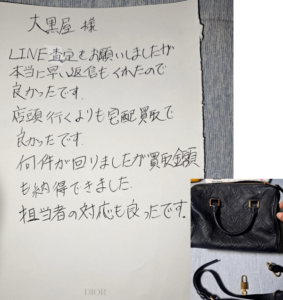 大黒屋 様
LINE査定をお願いしましたが
本当に早い返信もくれたので
良かったです。
店頭行くよりも宅配買取で
良かったです。
何件が回りましたが買取金額
も納得できました。
担当者の対応も良ったです。
DIOR